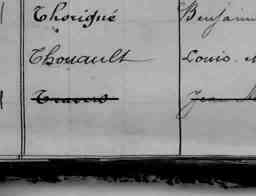 Thorigné Benjamin
Thouault Louis
Travers Jean